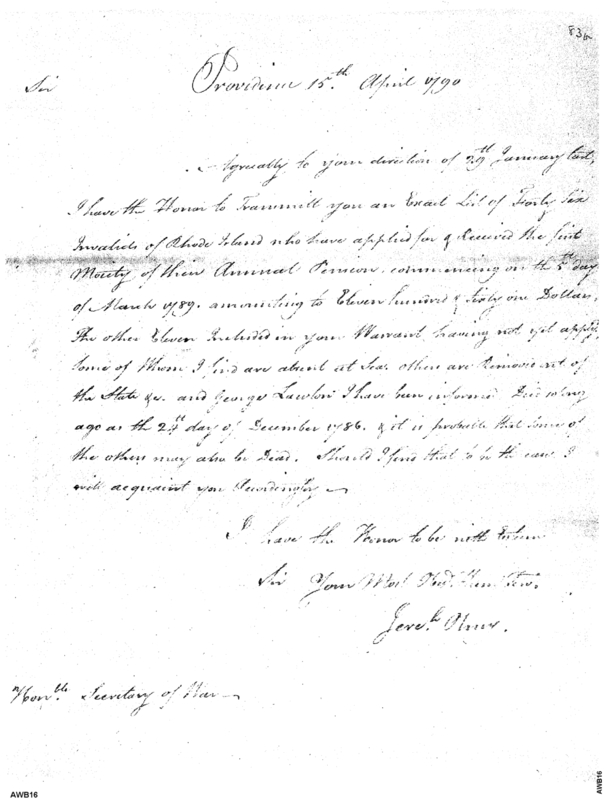 83a
Providence 15.th April 1790
Sir
Agreeably to your direction of 29th January last,
I have the Honor to Transmitt you an Exact List of Forty Six
Invalids of Rhode Island who have applied for & Received the first
Moiety of their Annual Pension, commencing on the 5th day
of March 1789. amounting to Eleven hundred & Sixty one Dollars,
The other Eleven Included in your Warrant, having not yet applyd,
Some of Whom I find are absent at Sea. others are Removed out of
the State &c. and George Lawton I have been informed Died so long
ago as the 24th day of December 1786. & it is probable that some of
the others may also be Dead. Should I find that to be the case I
will acquaint you Accordingly
I have the Honor to be with Esteem
Sir Your Most Obed.t Humb Serv.
Jere.h Olney.
Hon.ble Secretary of War
AWB16
AWB16